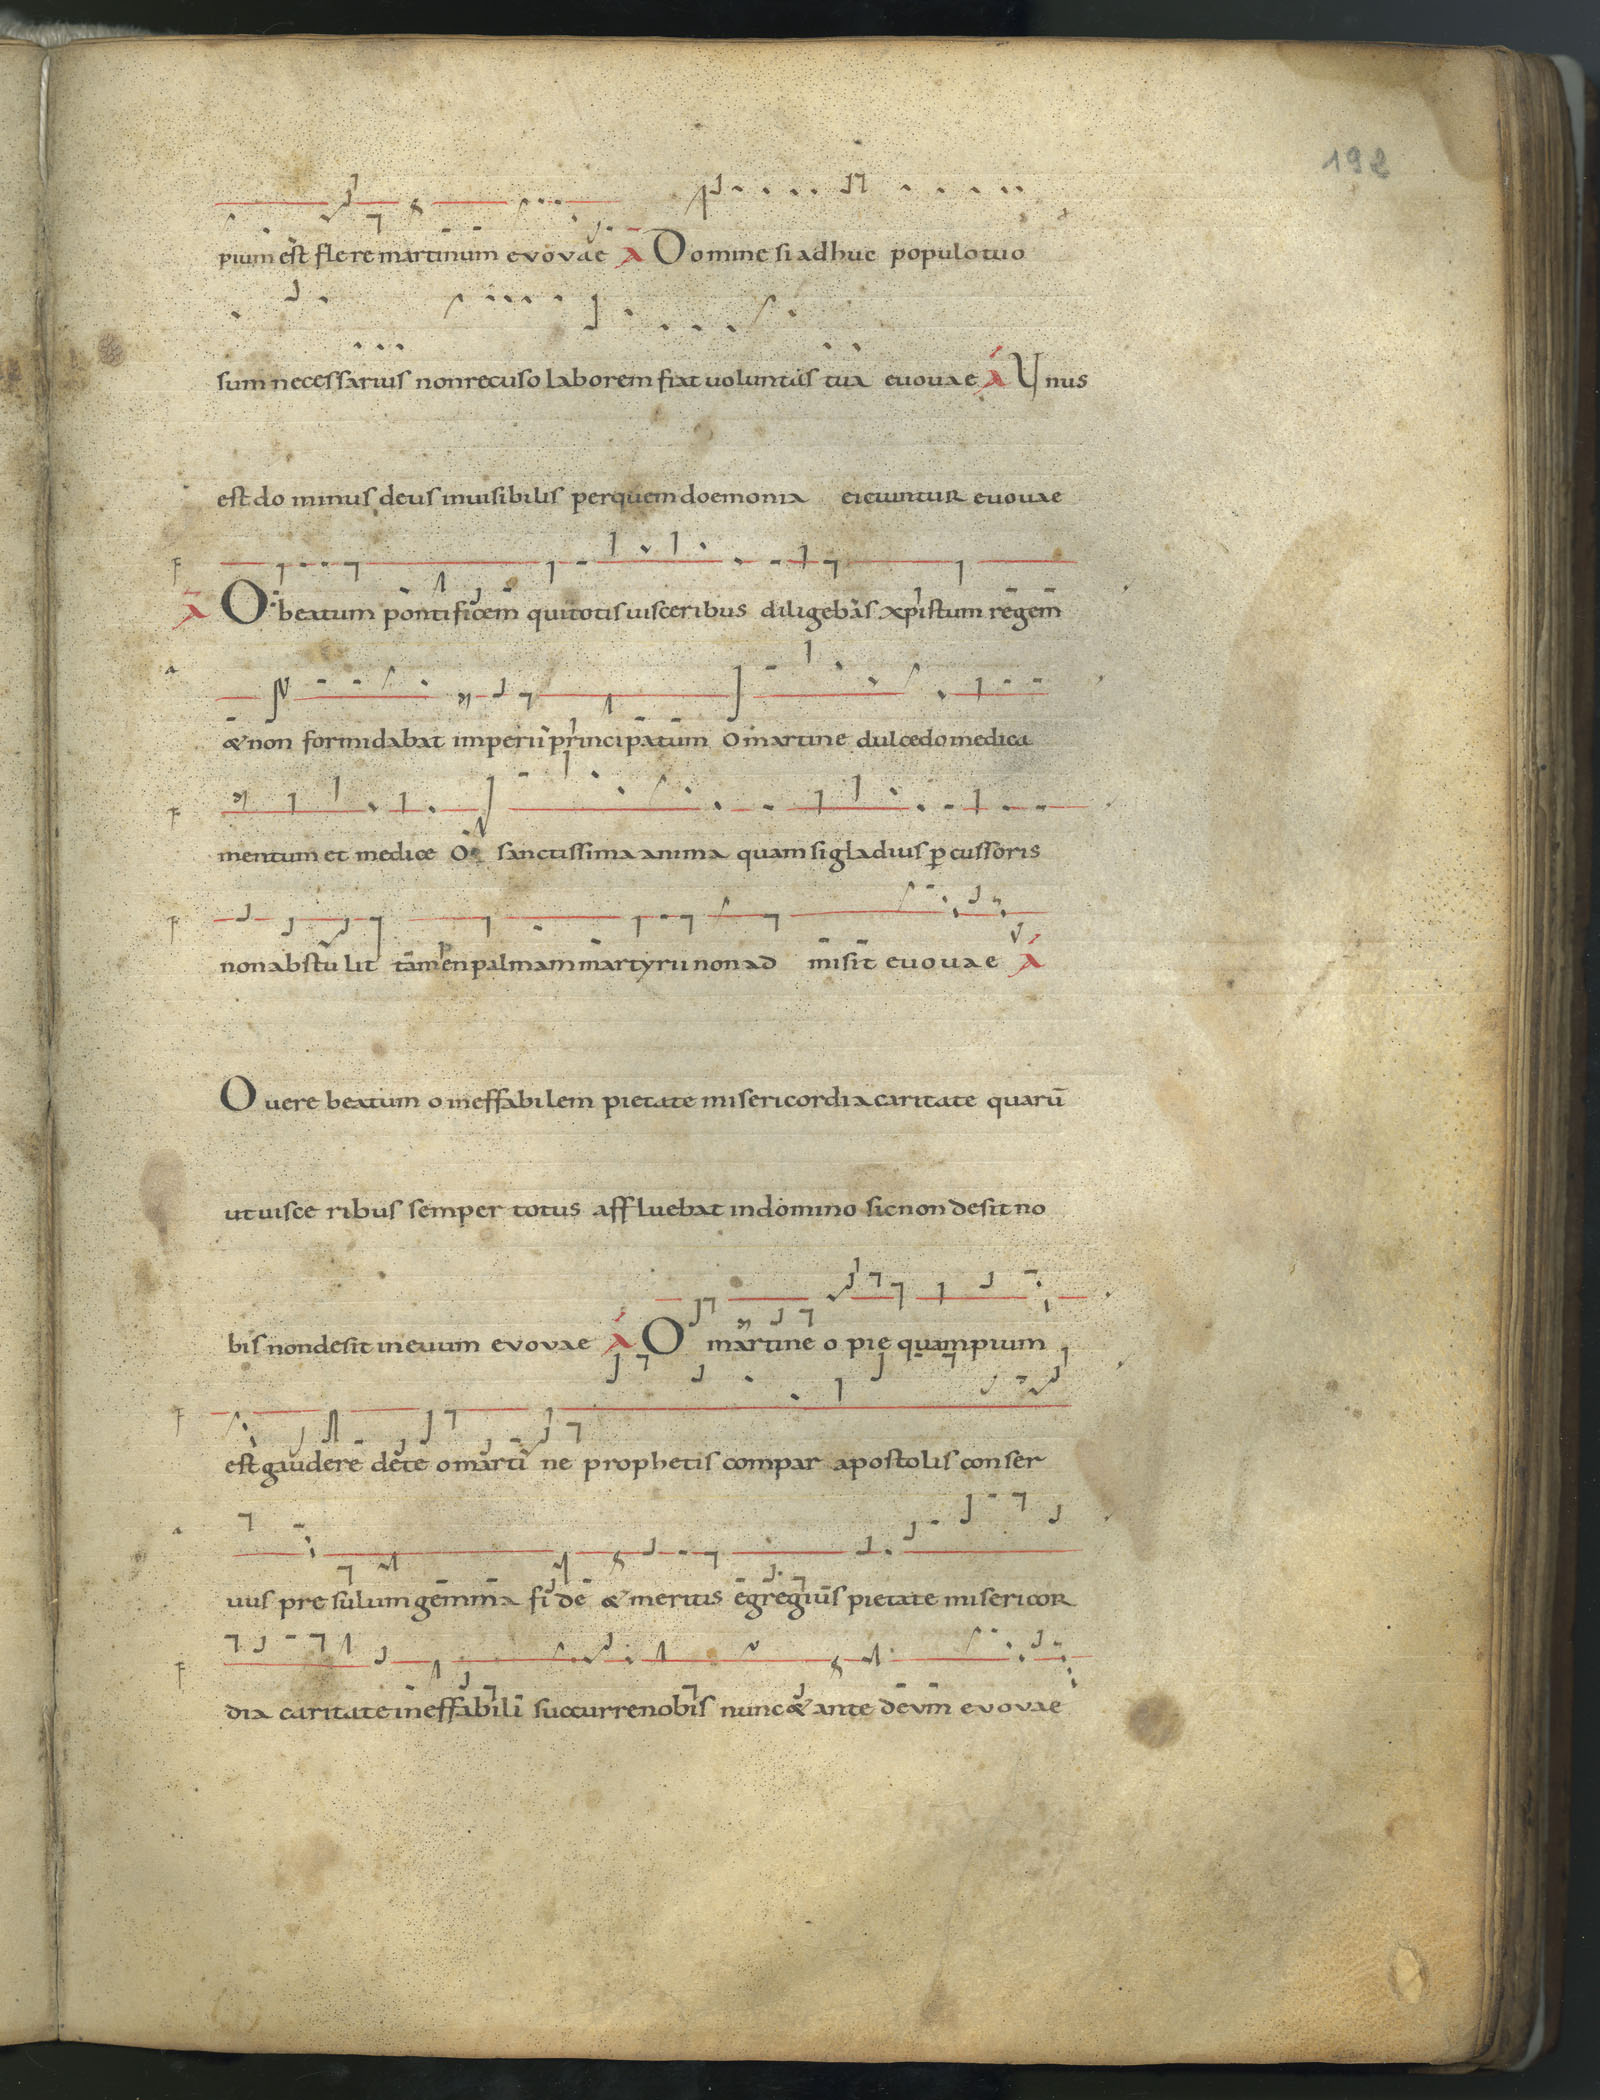 192
pium est flere martinum evovae A Domine si adhuc populo tuo
sum necessarius non recuso laborem fiat uoluntas tua euouae A Vnus
est dominus deus inuisibilis per quem doemonia eiciuntur euouae
A O beatum pontificem qui totis uisceribus diligebas xpistum regem
& non formidabat imperii principatum O martine dulcedo medica
mentum et medice O sanctissima anima quam si gladius p̱cussoris
non abstulit tamen palmam martyrii non ad misit euouae A
O uere beatum o ineffabilem pietate misericordia caritate quarū
ut uisceribus semper totus affluebat in domino sic non desit no
bis non desit in euum evovae A O martine o pie quam pium
F est gaudere de te o martine prophetis compar apostolis conser
uus presulum gemma fide & meritis egregius pietate misericor
F dia caritate ineffabili succurre nobis nunc & ante deum evovae